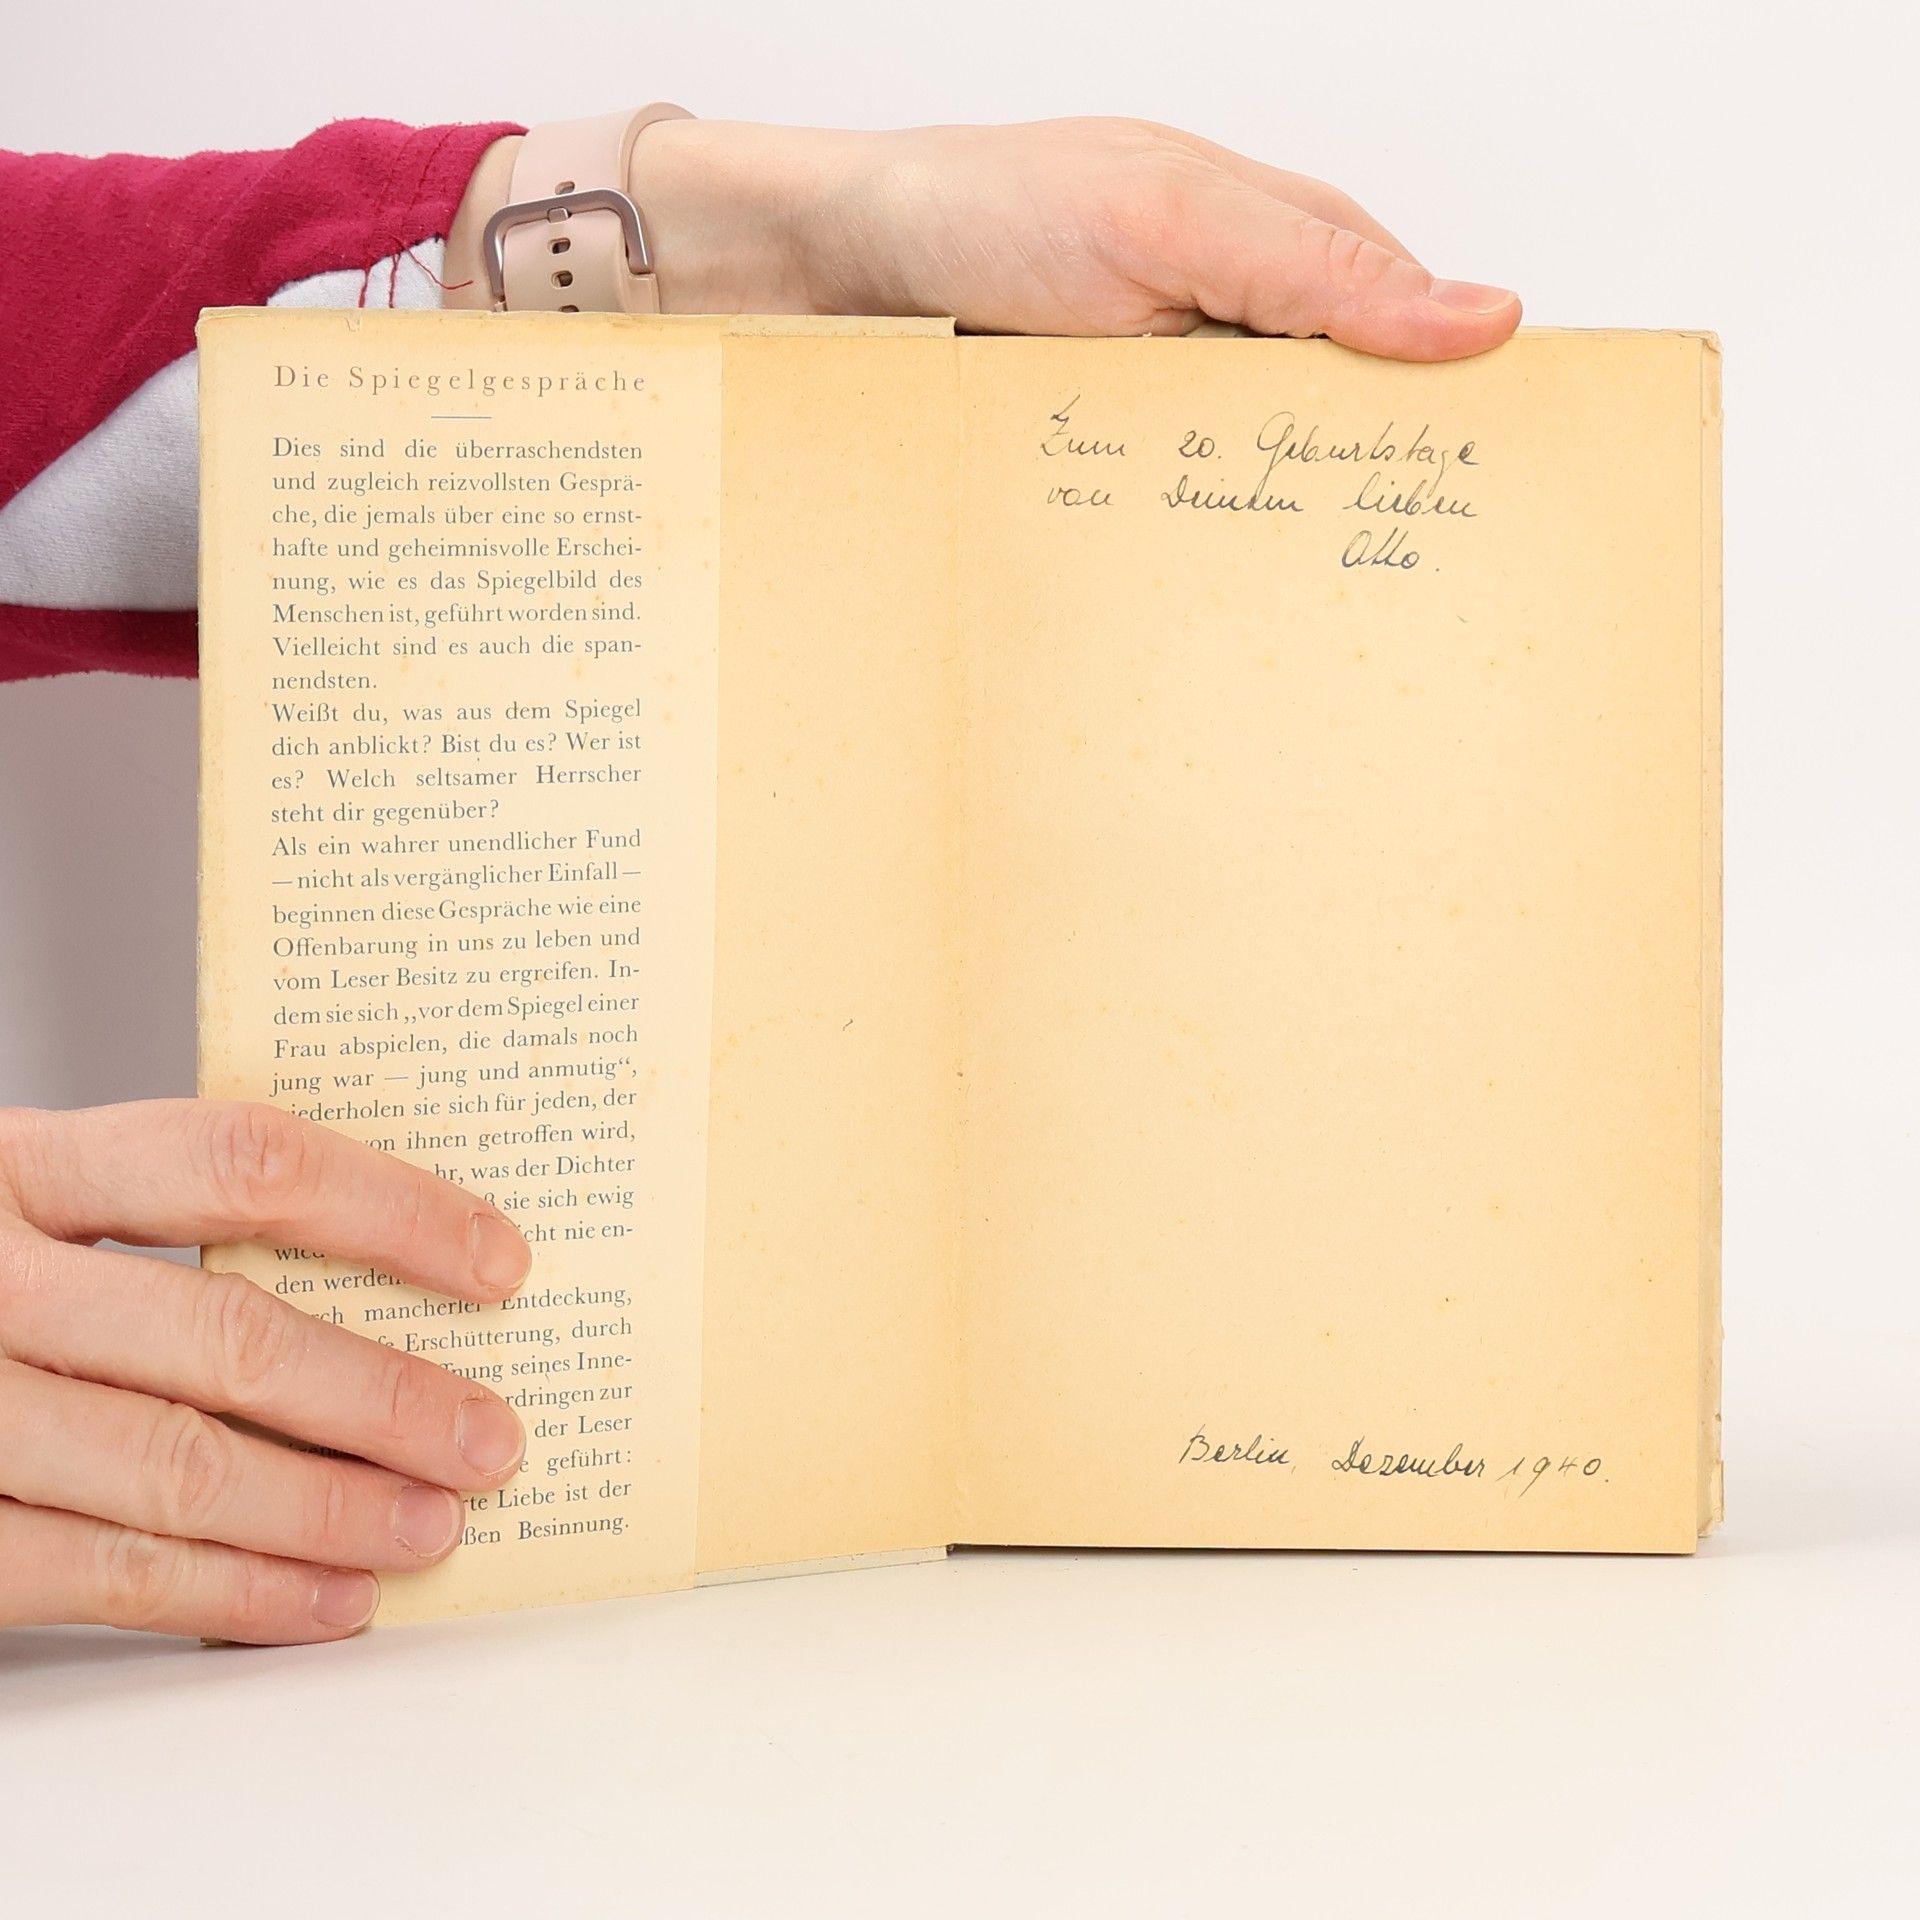 Die Spiegelgespräche
Dies sind die überraschendsten
und zugleich reizvollsten Gesprä-
che, die jemals über eine so ernst-
hafte und geheimnisvolle Erschei-
nung, wie es das Spiegelbild des
Menschen ist, geführt worden sind.
Vielleicht sind es auch die span-
nendsten.
Weißt du, was aus dem Spiegel
dich anblickt? Bist du es? Wer ist
es? Welch seltsamer Herrscher
steht dir gegenüber?
Als ein wahrer unendlicher Fund
— nicht als vergänglicher Einfall —
beginnen diese Gespräche wie eine
Offenbarung in uns zu leben und
vom Leser Besitz zu ergreifen. In-
dem sie sich „vor dem Spiegel einer
Frau abspielen, die damals noch
jung war — jung und anmutig“,
wiederholen sie sich für jeden, der
von ihnen getroffen wird,
was der Dichter
sie sich ewig
nie en-
den werden.
mancherlei Entdeckung,
Erschütterung, durch
seines Inne-
zur
der Leser
geführt:
Liebe ist der
Besinnung.
Zum 20. Geburtstage
von Deinem lieben
Otto.
Berlin, Dezember 1940.